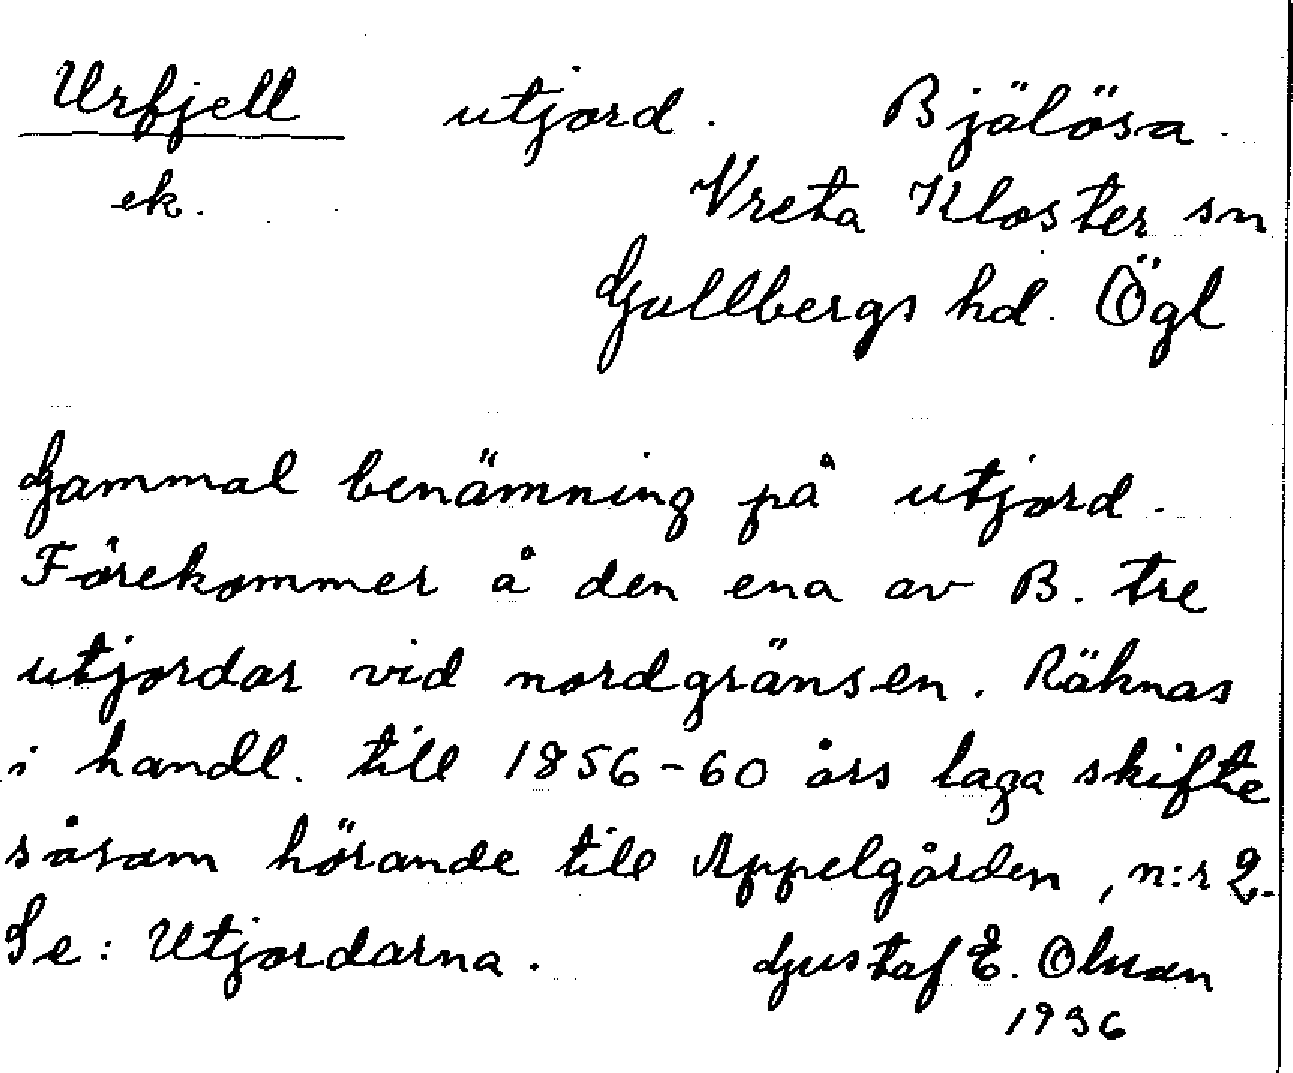 Urfjell utjord. Bjälösa.
ek. Vreta Kloster sn
Gullbergs hd. Ögl
Gammal benämning på utjord.
Förekommer å den ena av B. tre
utjordar vid nordgränsen. Räknas
i handl. till 1856-60 års laga skifte
såsom hörande till Appelgården, n:r 2.
Se: Utjordarna. Gustaf E. Olsson
1936